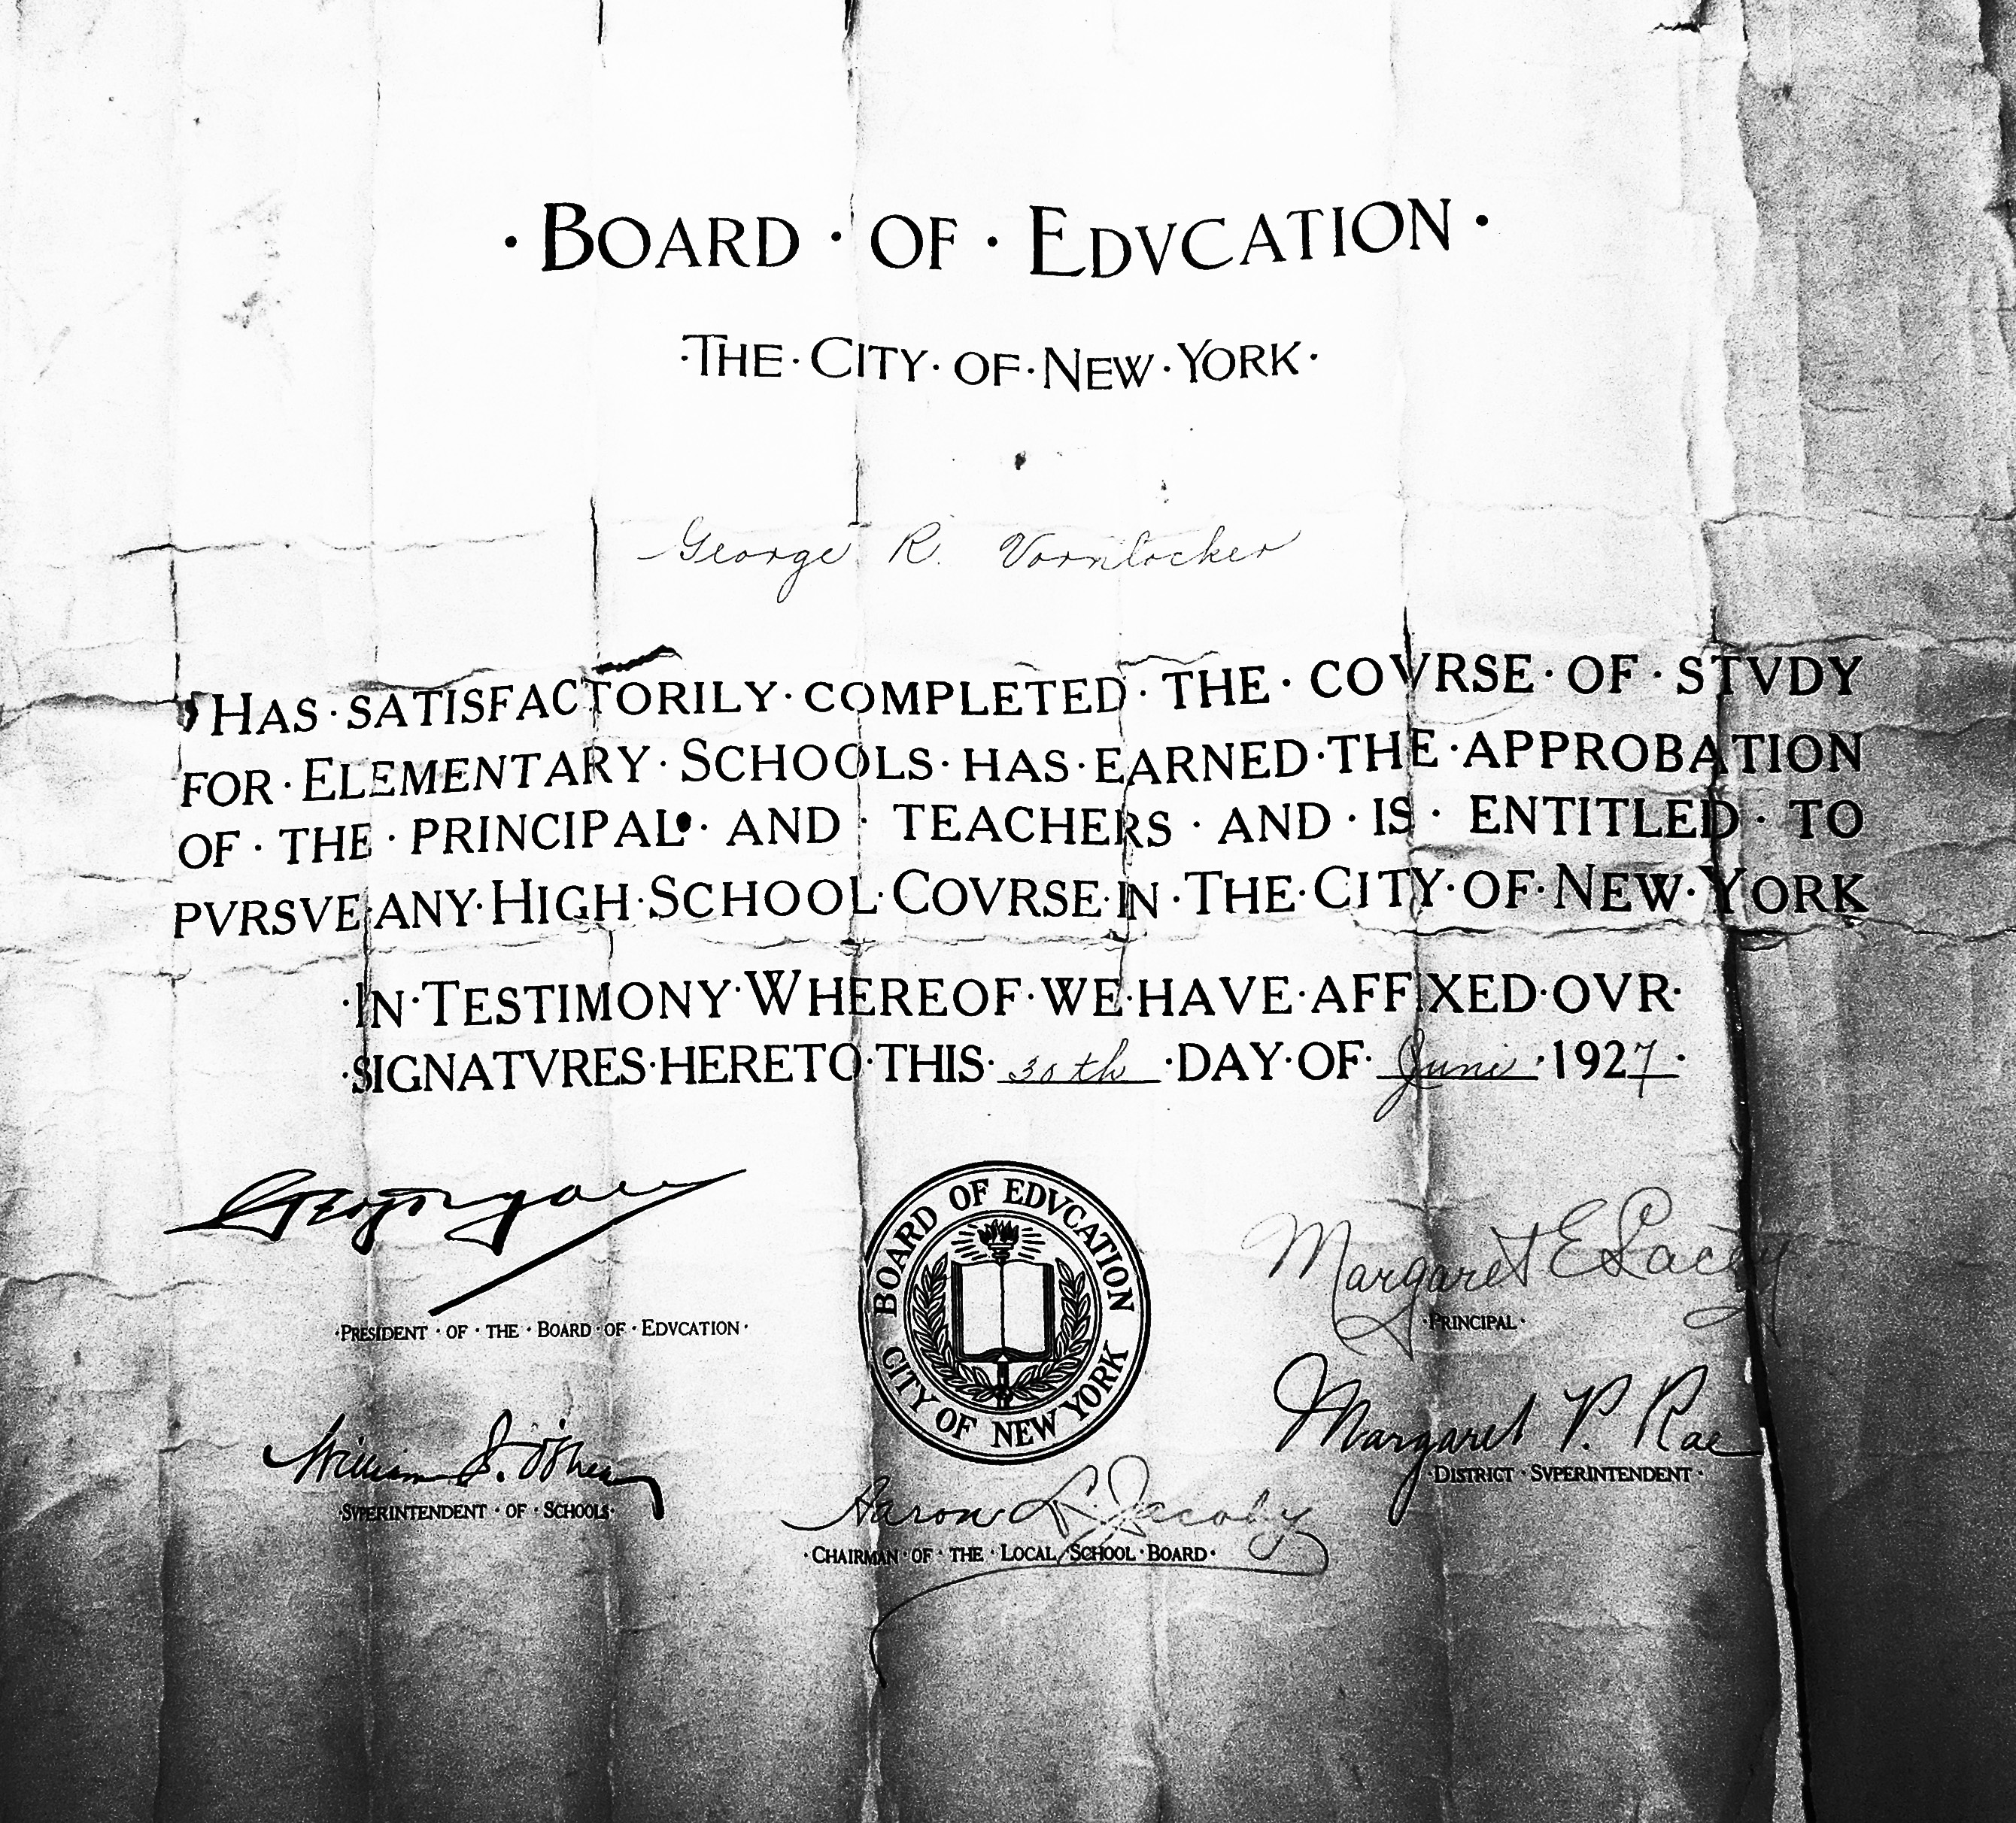 · BOARD · OF · EDVCATION ·
· THE · CITY · OF · NEW · YORK ·
George R. Vornlocker
HAS · SATISFACTORILY · COMPLETED · THE · COVRSE · OF · STVDY
FOR · ELEMENTARY · SCHOOLS · HAS · EARNED · THE · APPROBATION
OF · THE · PRINCIPAL · AND · TEACHERS · AND · IS · ENTITLED · TO
PVRSVE · ANY · HIGH · SCHOOL · COVRSE · IN · THE · CITY · OF · NEW · YORK
· IN · TESTIMONY · WHEREOF · WE · HAVE · AFFIXED · OVR ·
· SIGNATVRES · HERETO · THIS · 30th · DAY · OF · June · 1927 ·
BOARD OF EDVCATION
CITY OF NEW YORK
Margaret E Lacey
· PRESIDENT · OF · THE · BOARD · OF · EDVCATION ·
· PRINCIPAL ·
William J. O'Shea
Margaret P. Rae
· SVPERINTENDENT · OF · SCHOOLS ·
· DISTRICT · SVPERINTENDENT ·
Aaron L. Jacoby
· CHAIRMAN · OF · THE · LOCAL · SCHOOL · BOARD ·